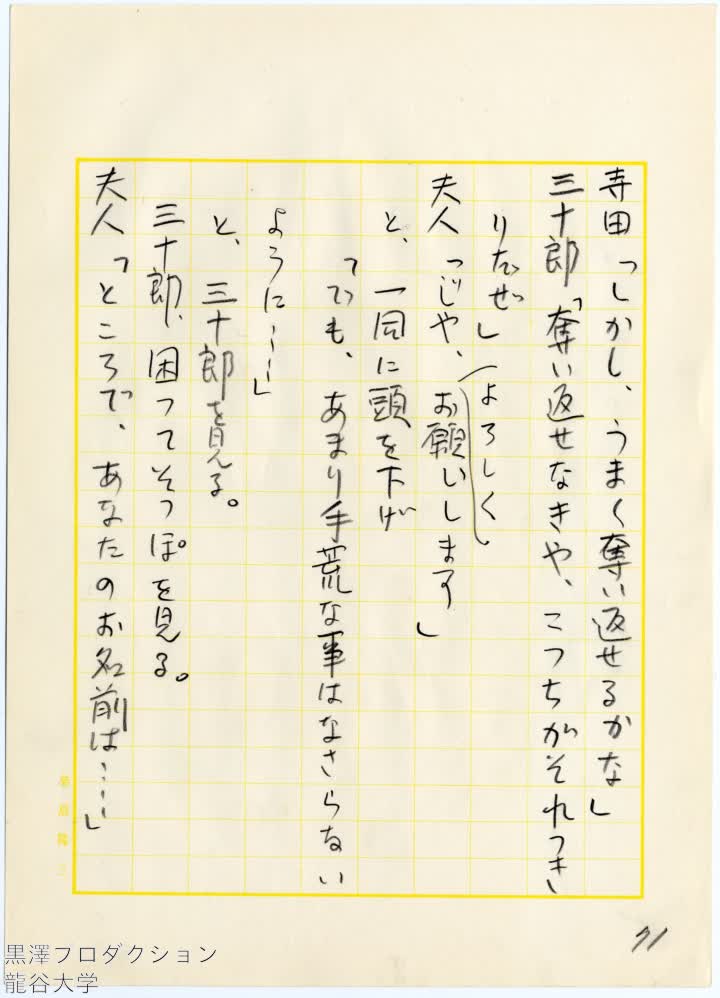 寺田「しかし、うまく奪い返せるかな」
三十郎「奪い返せなきや、こつちがそれつき
りだぜ」
(よろしく)
夫人「じや、お願いします」
と、一同に頭を下げ
「でも、あまり手荒な事はなさらない
ように……」
と、三十郎を見る。
三十郎、困つてそつぽを見る。
夫人「ところで、あなたのお名前は……」
71
黒澤プロダクション
龍谷大学